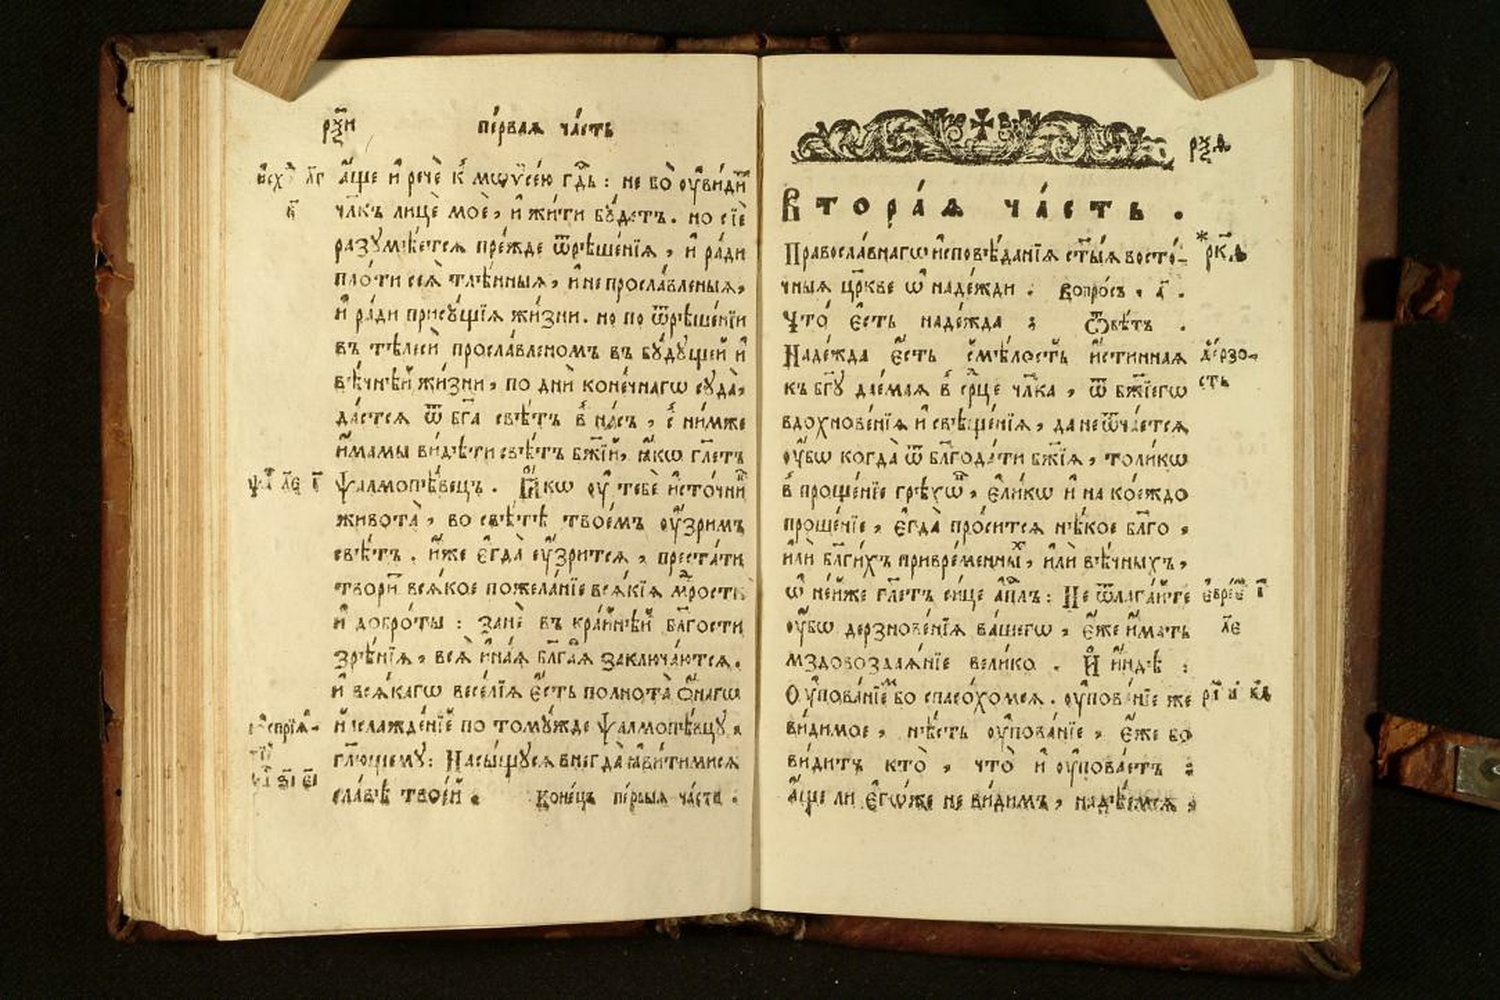 рѯ҃и первая ча́сть
а҆́ще и҆ речѐ к̾ мѡѵсе́ю гдⷭ҇ь : не бо̀ ᲂу҆ви́дитъ
чл҃къ лицѐ моѐ, и҆ жи́ти бꙋ́детъ. но сїѐ
разꙋмѣ́етсѧ пре́жде ѿрѣше́нїѧ , и҆ ра́ди
пло́ти сеѧ̀ тлѣ́нныѧ, и҆ не просла́вленыѧ,
и҆ ра́ди присꙋ́щїѧ жи́зни. но по ѿрѣше́нїи
въ тѣлесѝ просла́вленомъ въ бꙋ́дꙋщей и҆
вѣ́чнѣй жи́зни, по днѝ коне́чнагѡ сꙋда̀,
да́стсѧ ѿ бг҃а свѣ́тъ в̾ на́съ , с̾ ни́мже
и҆́мамы ви́дѣти свѣ́тъ бж҃їй, ꙗ҆́кѡ гл҃етъ
Ѱалмопѣ́вецъ . Ꙗ҆́кѡ ᲂу҆ тебѐ и҆сто́чникъ
живота̀ , во свѣ́тѣ твое́мъ ᲂу҆́зримъ
свѣ́тъ . и҆́же є҆гда̀ ᲂу҆́зритсѧ , преста́ти
твори́тъ всѧ́кое пожела́нїе всѧ́кїѧ мⷣрости
и҆ добро́ты : занѐ въ кра́йнѣй бл҃гости
зрѣ́нїѧ , всѧ̀ и҆на́ѧ бл҃га́ѧ заключа́ютсѧ.
и҆ всѧ́кагѡ весе́лїѧ є҆́сть полнота̀ ѻ҆́нагѡ
и҆ ᲂуслажде́нїе по томꙋ́жде ѱалмопѣ́вцꙋ ,
гл҃ющемꙋ: Насы́щꙋсѧ внегда̀ ꙗ҆ви́тимисѧ
сла́вѣ твое́й . Коне́цъ пе́рвыѧ ча́сти .
и҆схⷪ҇ л҃г
к҃
ѱаⷧ҇ л҃є і҃
рѯ҃ѳ
Втора́ѧ ча́сть .
Правосла́внагѡ и҆сповѣ́данїѧ ст҃ы́ѧ восто́-
чныѧ цр҃кве ѡ҆ наде́жди . Вопро́съ . а҃ .
Что̀ є҆́сть наде́жда ; Ѿвѣ́тъ .
Наде́жда є҆́сть смѣ́лость и҆́стинная
къ бг҃ꙋ дае́маѧ в̾ срⷣце чл҃ка , ѿ бж҃їегѡ
вдохнове́нїѧ и҆ свѣще́нїѧ , да не ѿча́етсѧ
ᲂу҆́бѡ когда̀ ѿ бл҃года́ти бж҃їѧ , толи́кѡ
в̾ проще́нїе грѣхѡ́въ , є҆ли́кѡ и҆ на ко́еждо
проше́нїе , є҆гда̀ про́ситсѧ нѣ́кое бл҃го ,
и҆лѝ бл҃ги́хъ привре́менныхъ , и҆лѝ вѣ́чныхъ ,
ѡ҆ не́йже гл҃етъ си́це а҆пⷭ҇лъ : Не ѿлага́йте
ᲂу҆́бѡ дерзнове́нїѧ ва́шегѡ , є҆́же и҆́мать
мздовоздаѧ́нїе вели́ко . И҆ и҆́ндѣ :
Ѹ҆пова́нїемъ бо спасо́хомсѧ . ᲂу҆пова́нїе же
ви́димое , нѣ́сть ᲂу҆пова́нїе , є҆́же бо
ви́дитъ кто̀ , что̀ и҆ ᲂу҆пова́етъ ;
а҆́ще ли є҆гѡ́же не ви́димъ , надѣ́емсѧ ,
де́рзо-
сть
є҆вре́є і҃
л҃е